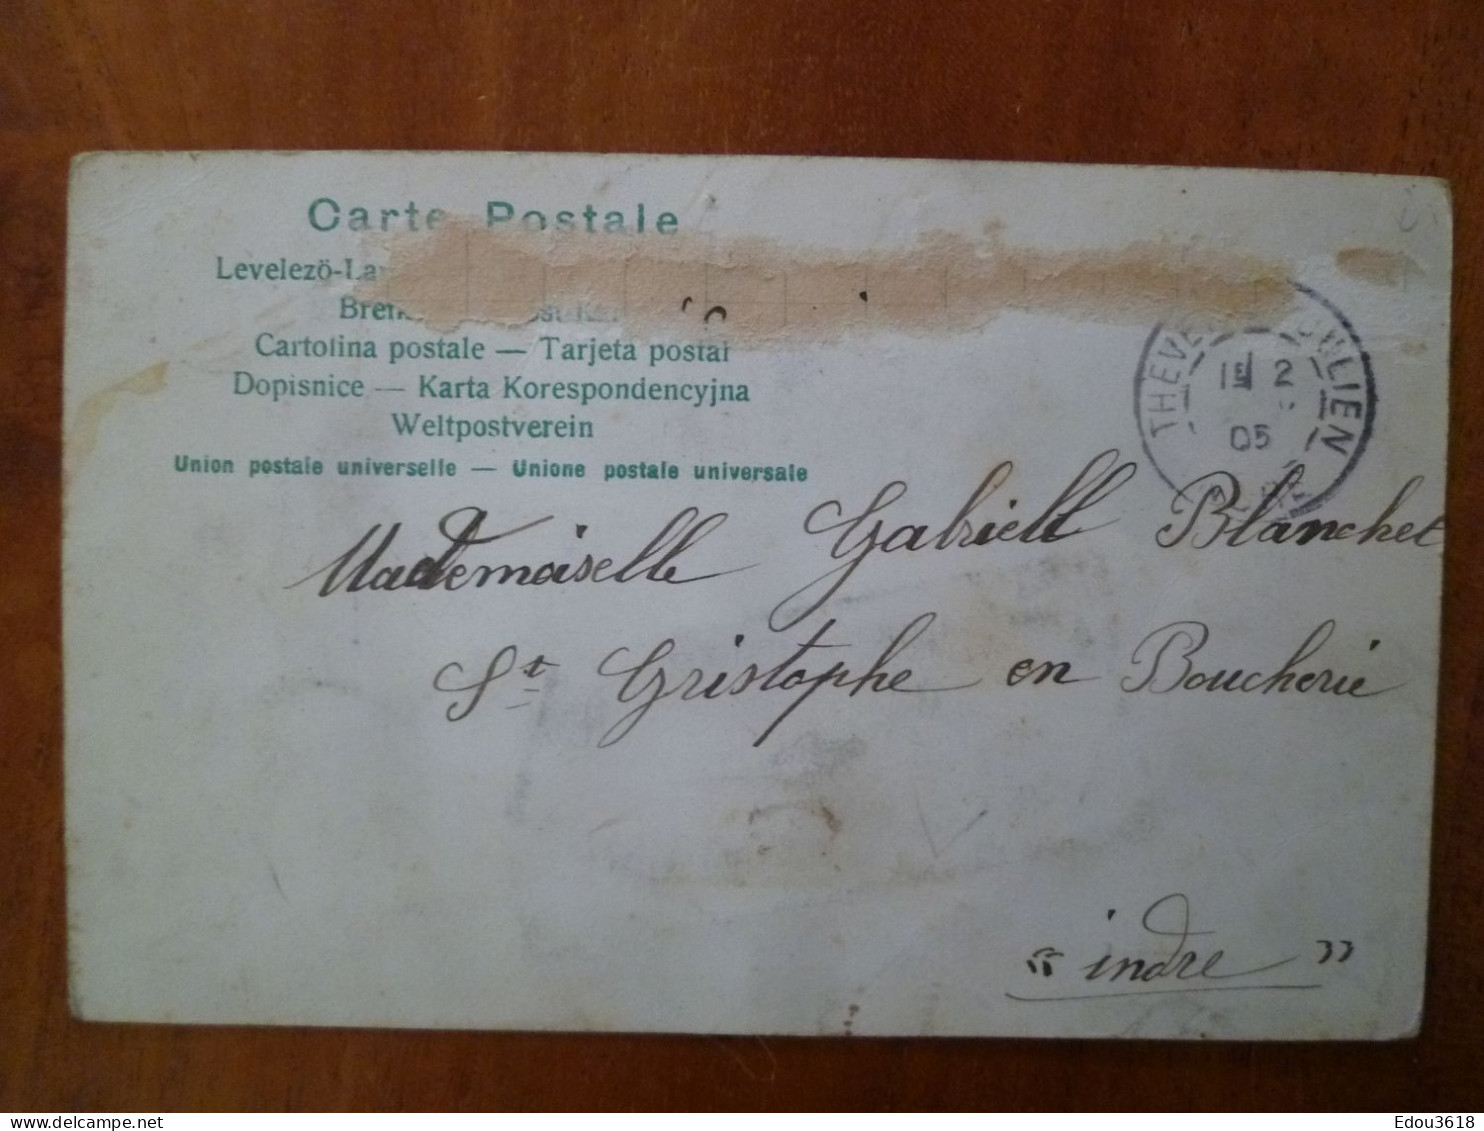 Carte Postale
Levelezö-
Cartolina postale — Tarjeta postal
Dopisnice — Karta Korespondencyjna
Weltpostverein
Union postale universelle — Unione postale universale
THEVET JULIEN
1E 2
05
Mademoiselle Gabriell Blanchet
St Gristophe en Boucherie
"indre"
Edou3618